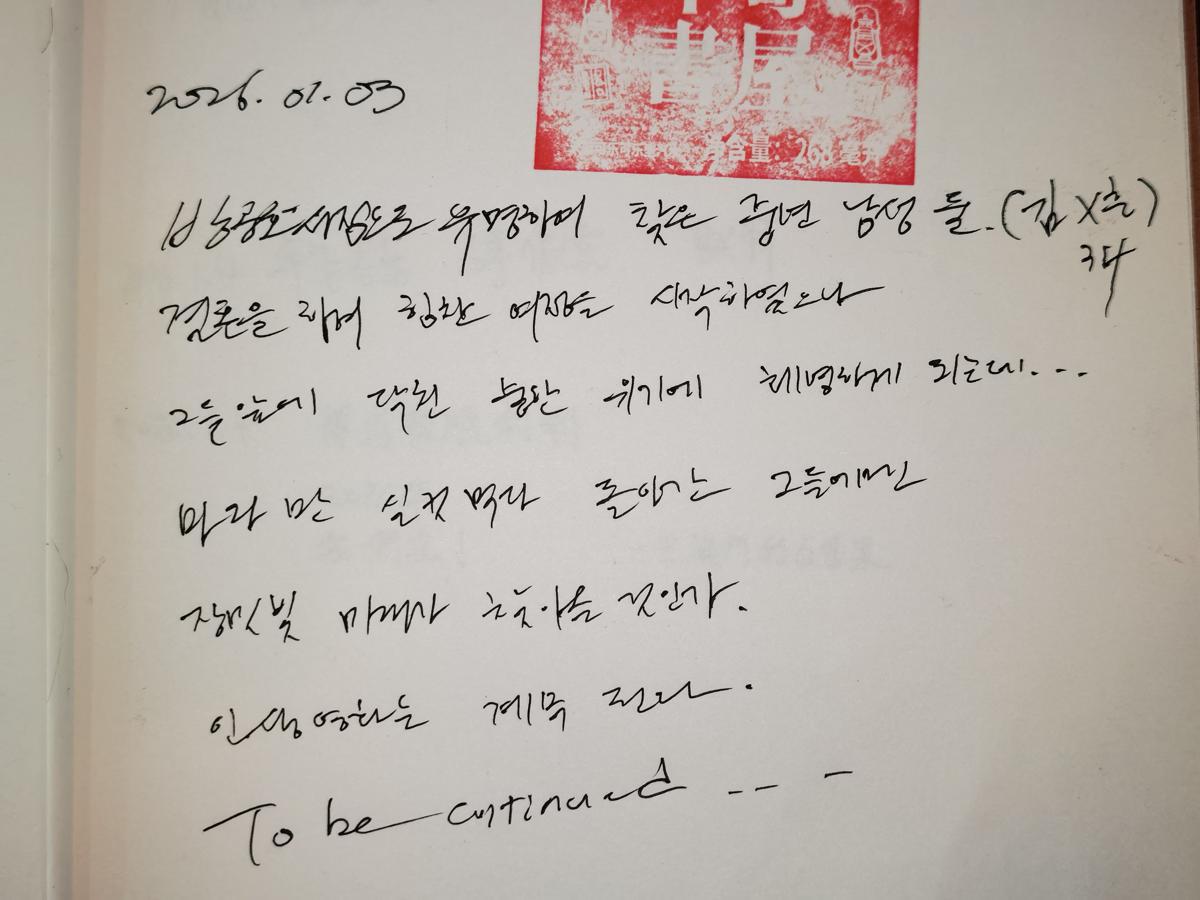 書屋
净含量: 268 毫升
2026. 01. 03
유명하여 찾은 중년 남성 들. (김X훈)
결혼을 하여 힘찬 여정을 시작하였으나
그들 앞에 닥친 위기에 체념하게 되는데...
마라 만 실컷 먹다 돌아간 그들에겐
장밋빛 미래가 찾아올 것인가.
인생 영화는 계속 된다.
To be continued _ _ _